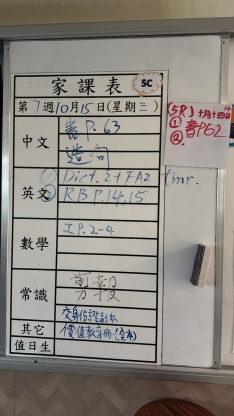 家課表 5C
第7週10月15日(星期三)
中文
書P.63
造句
英文
① Dict.2+FA2 tmr.
② RB P.14,15
數學
I.P.2-4
常識
剪報
其它
交身份證副本
價值教育冊(全本)
值日生
(5R) 十月十四日
① 書P.62
②